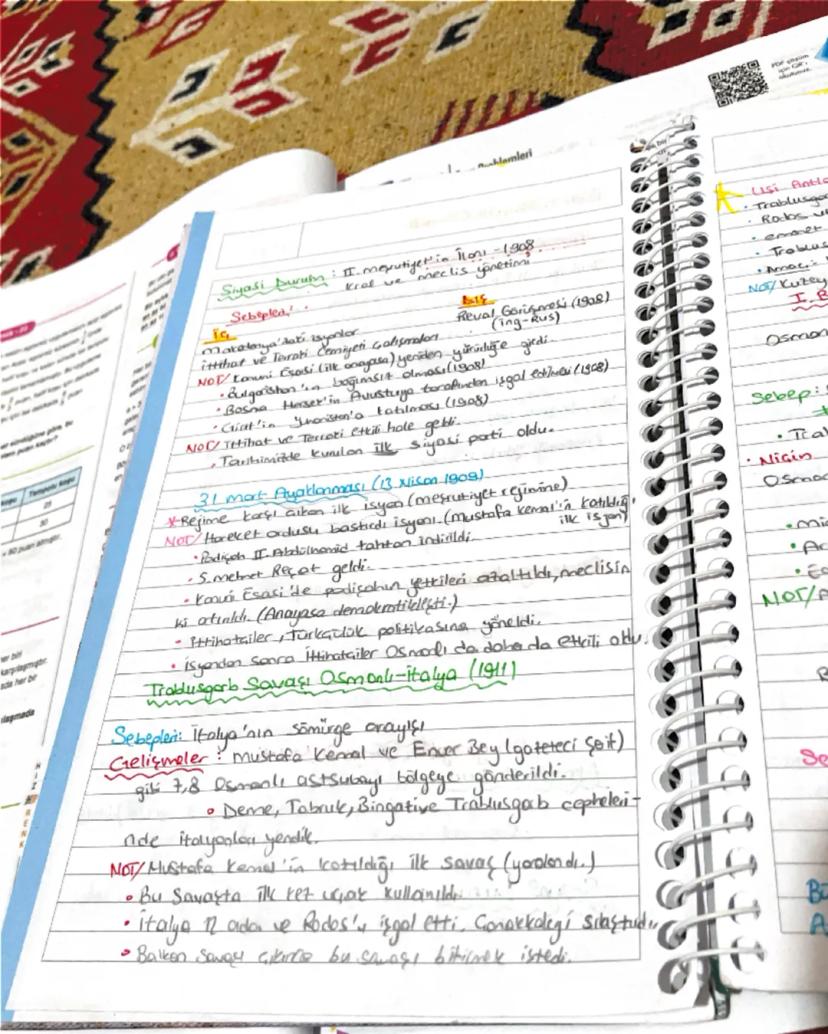 PDF çözüm
Problemleri
Siyasi Durum : II. meşrutiyet'in İlanı - 1908
Kral ve meclis yönetimi
Sebepleri:
İç
Dış
Makedonya'daki isyanlar
Reval Görüşmesi (1908)
(ing-Rus)
ittihat ve Terakki Cemiyeti Çalışmaları
NOT/ Kanuni Esasi (ilk anayasa) yeniden yürürlüğe girdi.
• Bulgaristan'ın bağımsız olması (1908)
• Bosna Hersek'in Avusturya tarafından işgal edilmesi (1908)
• Girit'in Yunanistan'a katılması (1908)
NOT/ İttihat ve Terakki etkili hale geldi.
• Tarihimizde kurulan ilk siyasi parti oldu.
31 mart Ayaklanması (13 Nisan 1909)
*Rejime karşı çıkan ilk isyan (meşrutiyet rejimine)
NOT/ Hareket ordusu bastırdı isyanı. (Mustafa Kemal'in katıldığı
ilk isyan)
• Padişah II. Abdülhamid tahtan indirildi.
• 5. mehmet Reşat geldi.
• Kanuni Esasi'de padişahın yetkileri azaltıldı, meclisin
ki artırıldı. (Anayasa demokratikleşti.)
• İttihatçiler, Türkçülük politikasına yöneldi.
• isyandan sonra İttihatçiler Osmanlı da daha da etkili oldu.
Trablusgarb Savaşı Osmanlı-İtalya (1911)
Sebepleri: İtalya'nın sömürge arayışı
Gelişmeler : Mustafa Kemal ve Enver Bey (gateteci Şerif)
gibi 7,8 Osmanlı astsubayı bölgeye gönderildi.
• Derne, Tobruk, Bingazi ve Trablusgarb cepheleri-
nde italyanları yendik.
NOT/ Mustafa Kemal'in katıldığı ilk savaş (yaralandı.)
• Bu Savaşta ilk kez uçak kullanıldı.
• İtalya 12 ada ve Rodos'u işgal etti. Çanakkaleyi sıkıştırdı.
• Balkan Savaşı çıkınca bu savaşı bitirmek istedi.
Uşi Antla
• Trablusga
• Rodos ve
• emanet
• Trablus
• Amaç:
NOT/ Kuzey
I. B
Osman
Sebep:
• Nişin
Osma
NOT/